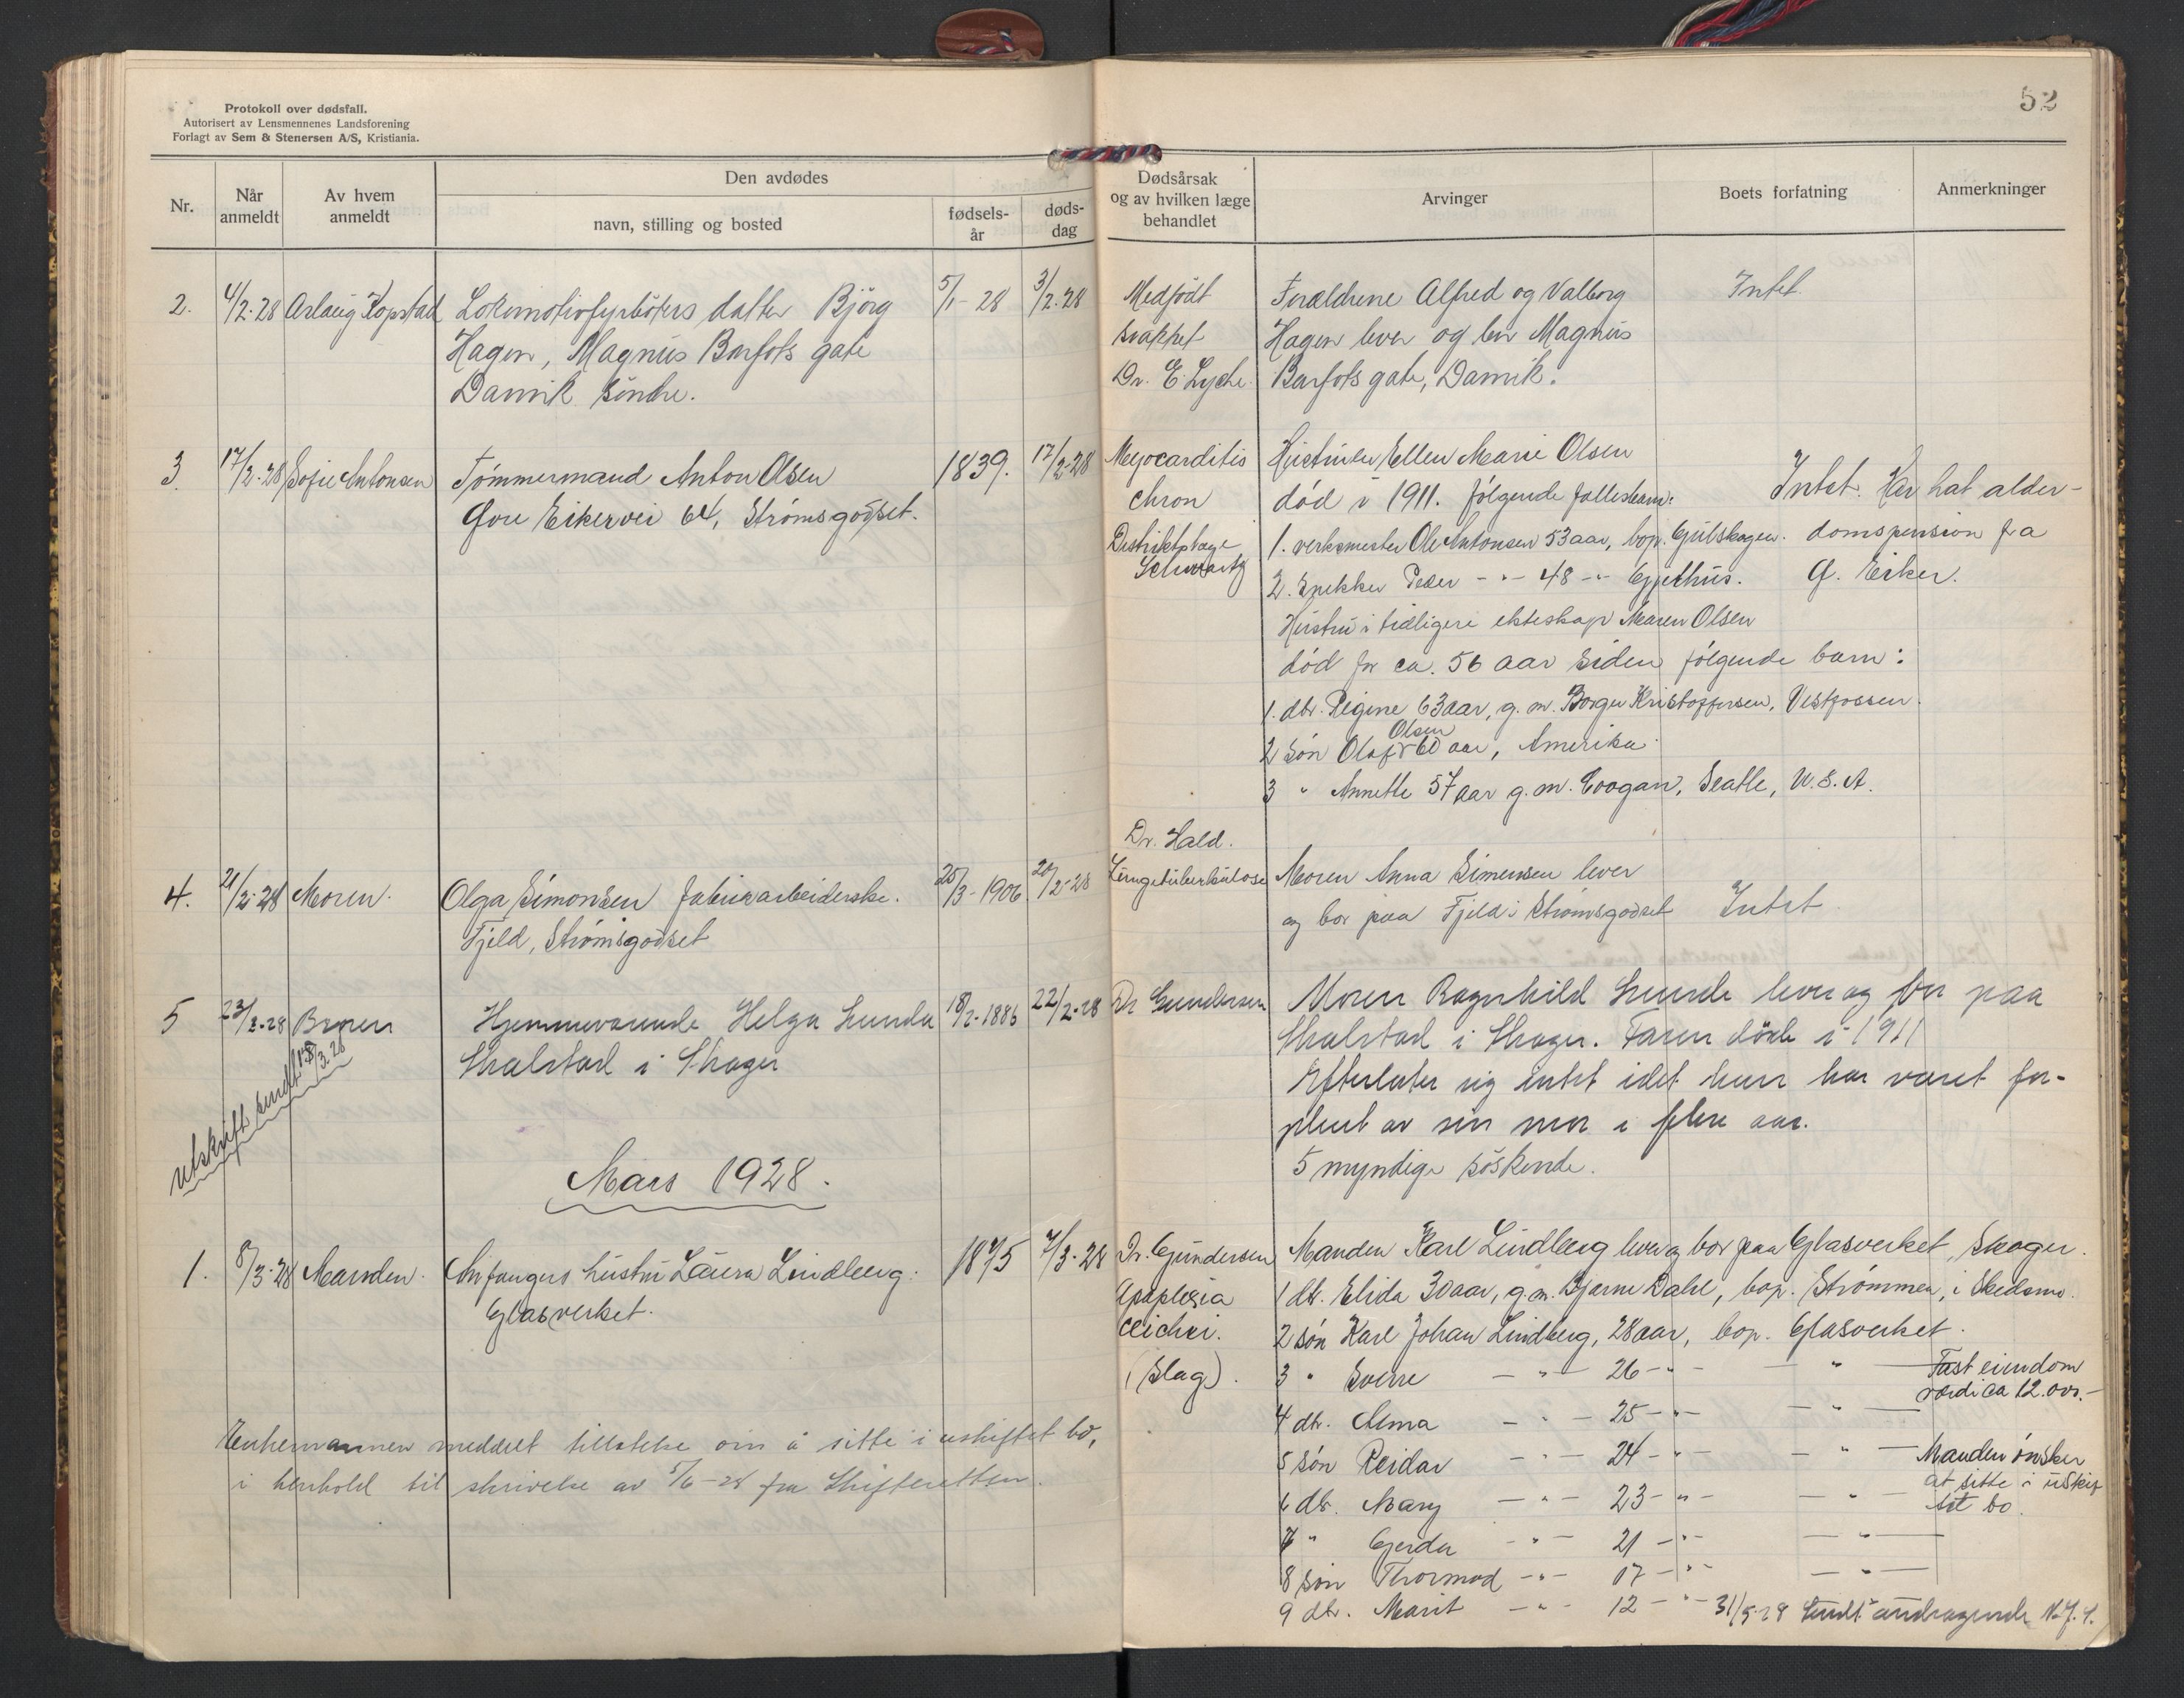 Protokoll over dødsfall.
Autorisert av Lensmennenes Landsforening
Forlagt av Sem & Stenersen A/S, Kristiania.
Nr.
Når anmeldt
Av hvem anmeldt
Den avdødes
navn, stilling og bosted
fødsels-år
døds-dag
2. 4/2-28 Aslaug Kopstad Lokomotivfyrbøters datter Bjørg 5/1-28 3/2-28
Hagen, Magnus Barfots gate
Danvik søndre.
3. 17/2-28 Sofie Antonsen Tømmermand Anton Olsen 1839. 17/2-28
Øvre Eikervei 64, Strømsgodset.
4. 21/2-28 Moren. Olga Simonsen fabrikarbeiderske. 25/3-1906 20/2-28
Fjeld, Strømsgodset
5 23/2-28 Hjemmeværende Helga Lunde 18/2-1886 22/2-28
Skalstad i Skoger
utskrift sendt 13/3.28
Mars 1928.
1. 8/3-28 Manden. Anfangers hustru Laura Lindberg. 1875 7/3-28
Glasverket.
Enkemannen meddelt tillatelse om å sitte i uskiftet bo,
i henhold til skrivelse av 5/6-28 fra Skifteretten.
52
Dødsårsak
og av hvilken læge
behandlet
Arvinger
Boets forfatning
Anmerkninger
Medfødt Forældrene Alfred og Valborg Intet.
svakhet Hagen lever og bor Magnus
Dr. E. Lyche. Barfots gate, Danvik.
Myocarditis Hustruen Ellen Marie Olsen
chron død i 1911. følgende fællesbarn: Intet. Har hat alder-
Distriktslæge 1. verksmester Ole Antonsen 53 aar, bop. Gulskogen. domspension fra
Schwartz 2. Snekker Peder -"- 48 -"- Gjethus. Ø. Eiker.
Hustru i tidligere ekteskap Maren Olsen
død for ca. 56 aar siden følgende barn:
1. dtr. Regine 63 aar, g.m. Borger Kristoffersen, Vestfossen.
2 søn Olaf Olsen 60 aar, Amerika.
3 " Annette 57 aar g.m. Coogan, Seatle, U.S.A.
Dr. Hald.
Lungetuberkulose Moren Anna Simensen lever
og bor paa Fjeld i Strømsgodset Intet.
Dr Gundersen Moren Ragnhild Lunde lever og bor paa
Skalstad i Skoger. Faren døde i 1911
Efterlater sig intet idet hun har været for-
pleiet av sin mor i flere aar.
5 myndige søskende.
Dr. Gundersen Manden Karl Lindberg lever og bor paa Glasverket, Skoger.
Apoplexia 1 dtr. Elida 30 aar, g.m. Bjarne Dahl, bop. Strømmen, i Skedsmo.
2 søn Karl Johan Lindberg, 28 aar, bop. Glasverket.
(Slag). 3 " Sverre -"- 26 -"- -"- Fast eiendom
værdi ca 12.000.-
4 dtr. Alma -"- 25 -"- -"-
5 søn Reidar -"- 24 -"- -"- Manden ønsker
at sitte i uskif
6 dtr. Mary -"- 23 -"- -"- tet bo.
7 " Gerda -"- 21 -"- -"-
8 søn Thormod -"- 17 -"- -"-
9 dtr. Marit -"- 12 -"- 31/5-28 Sendt andragende